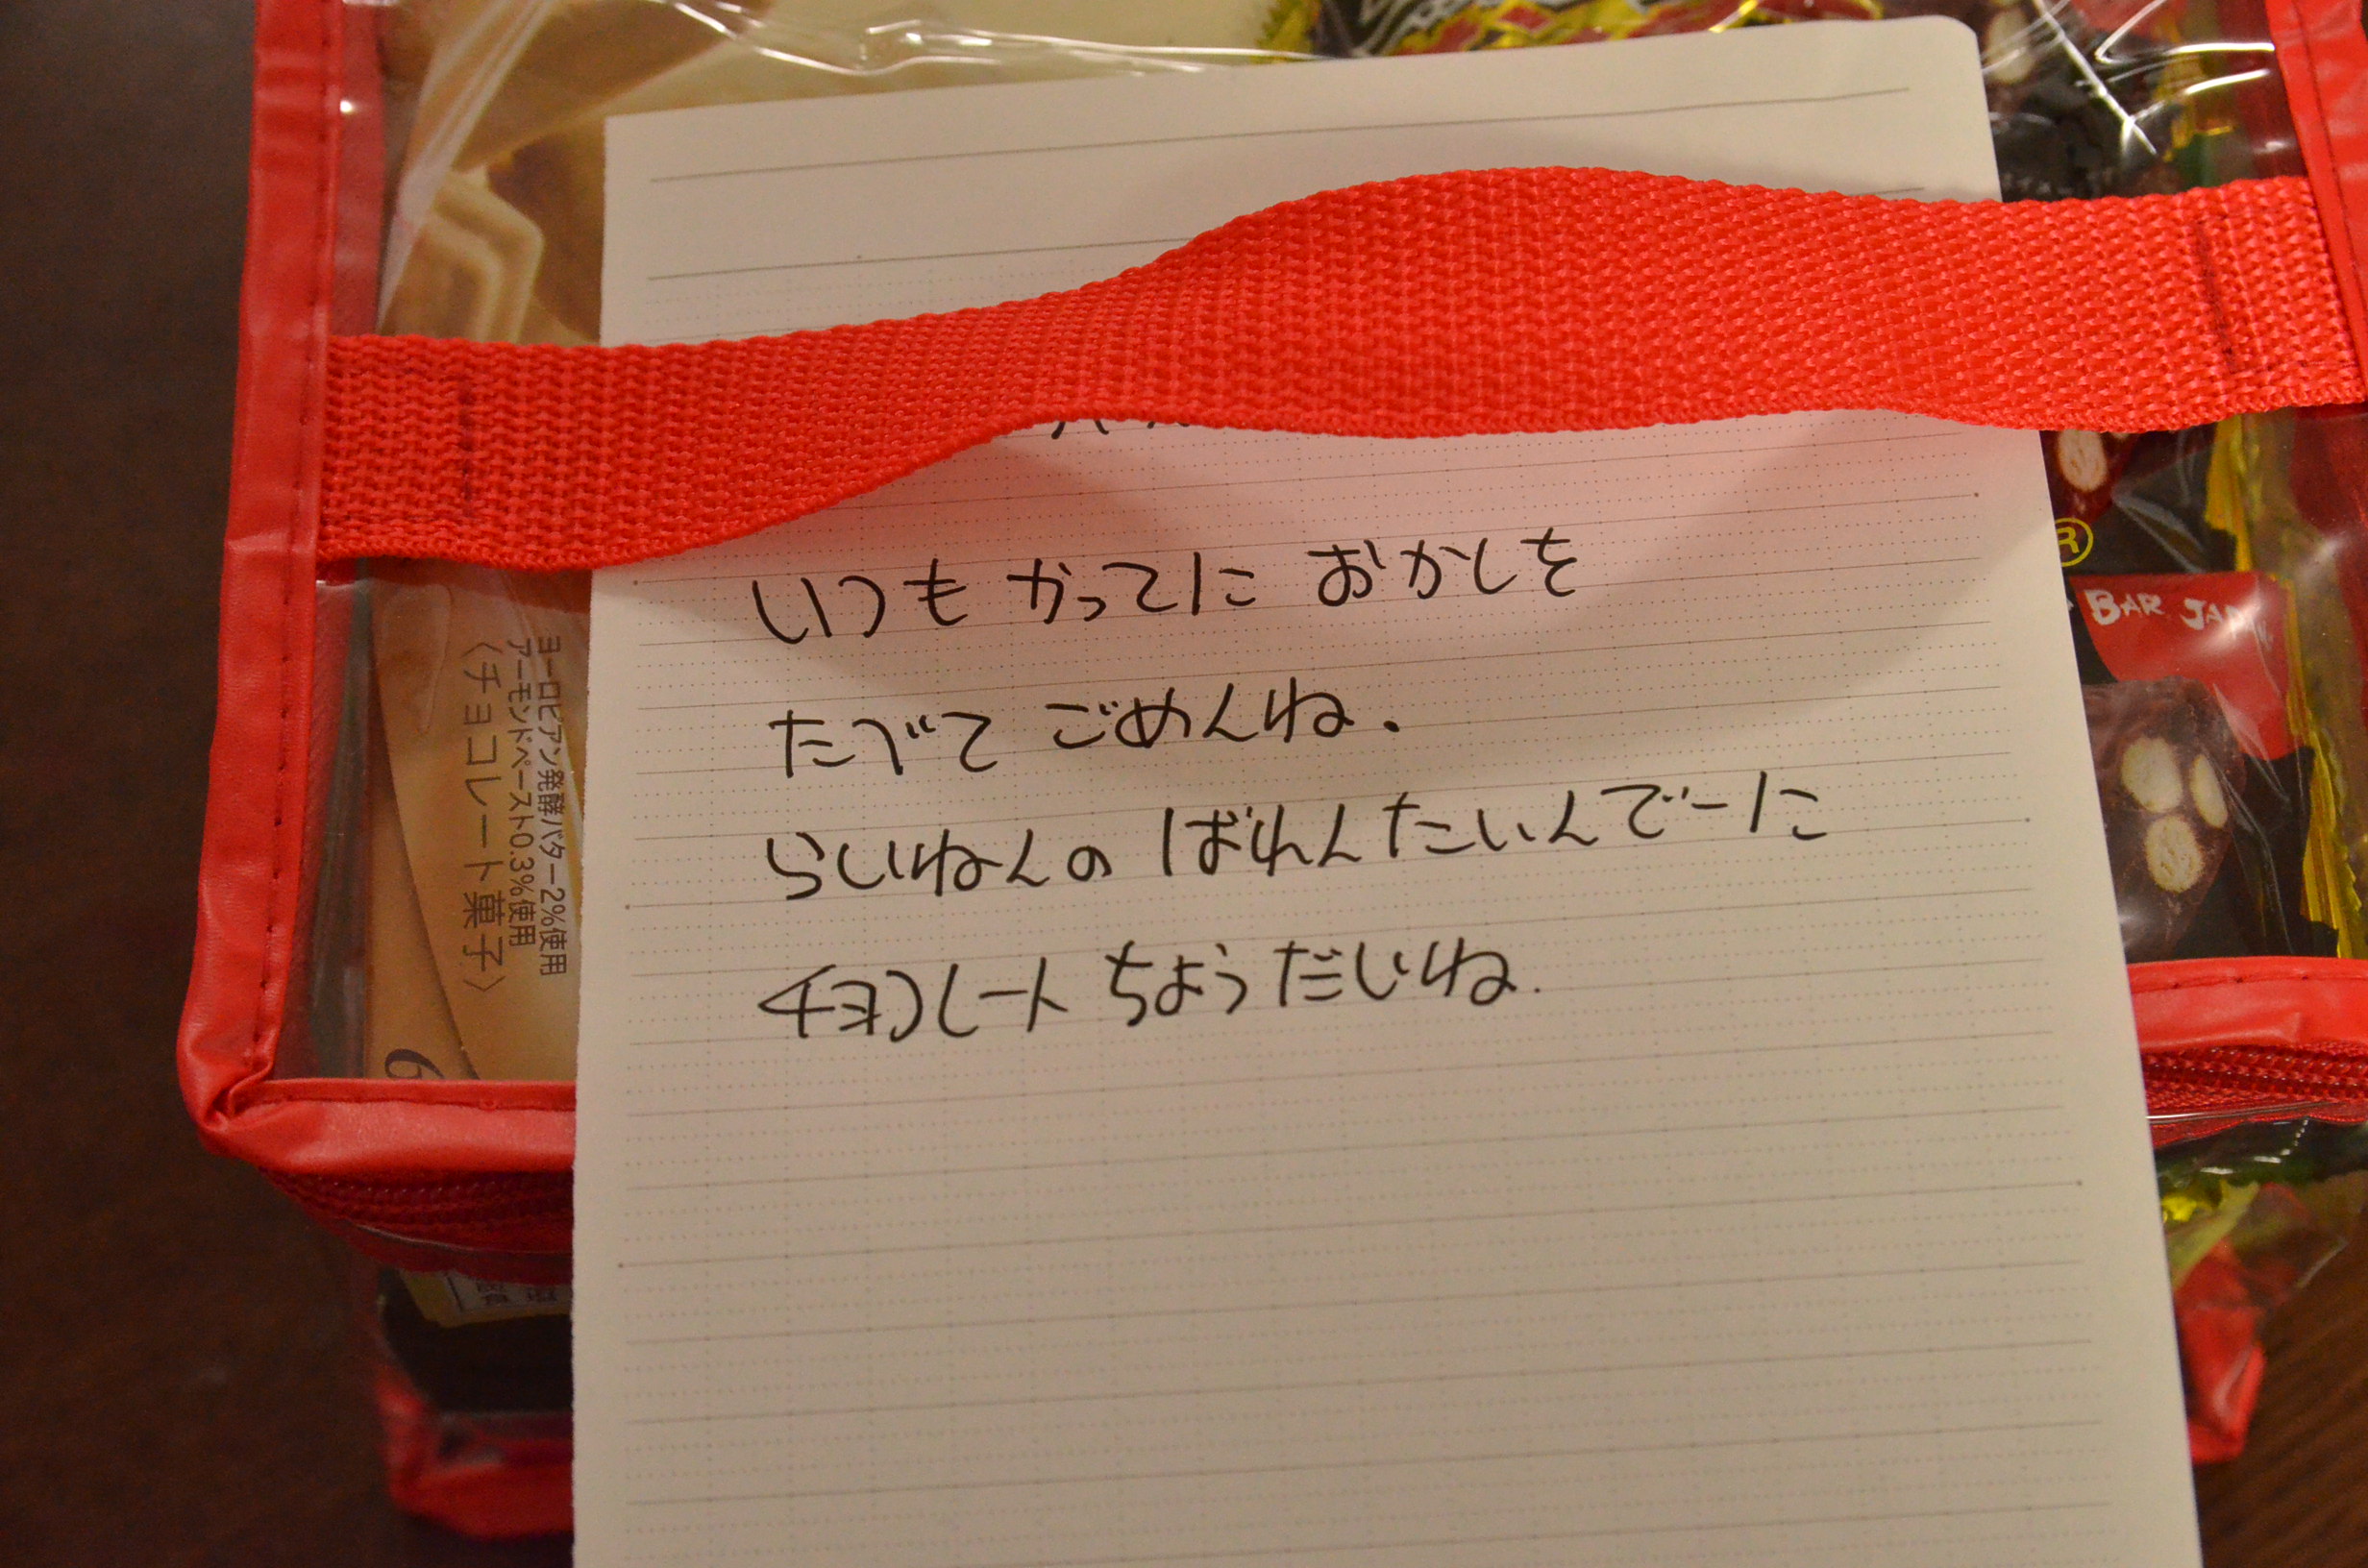 いつも かってに おかしを
たべて ごめんね.
らいねんの ばれんたいんでーに
チョコレート ちょうだいね.
ヨーロピアン発酵バター2%使用
アーモンドペースト0.3%使用
〈チョコレート菓子〉
6
R
BAR JAPAN